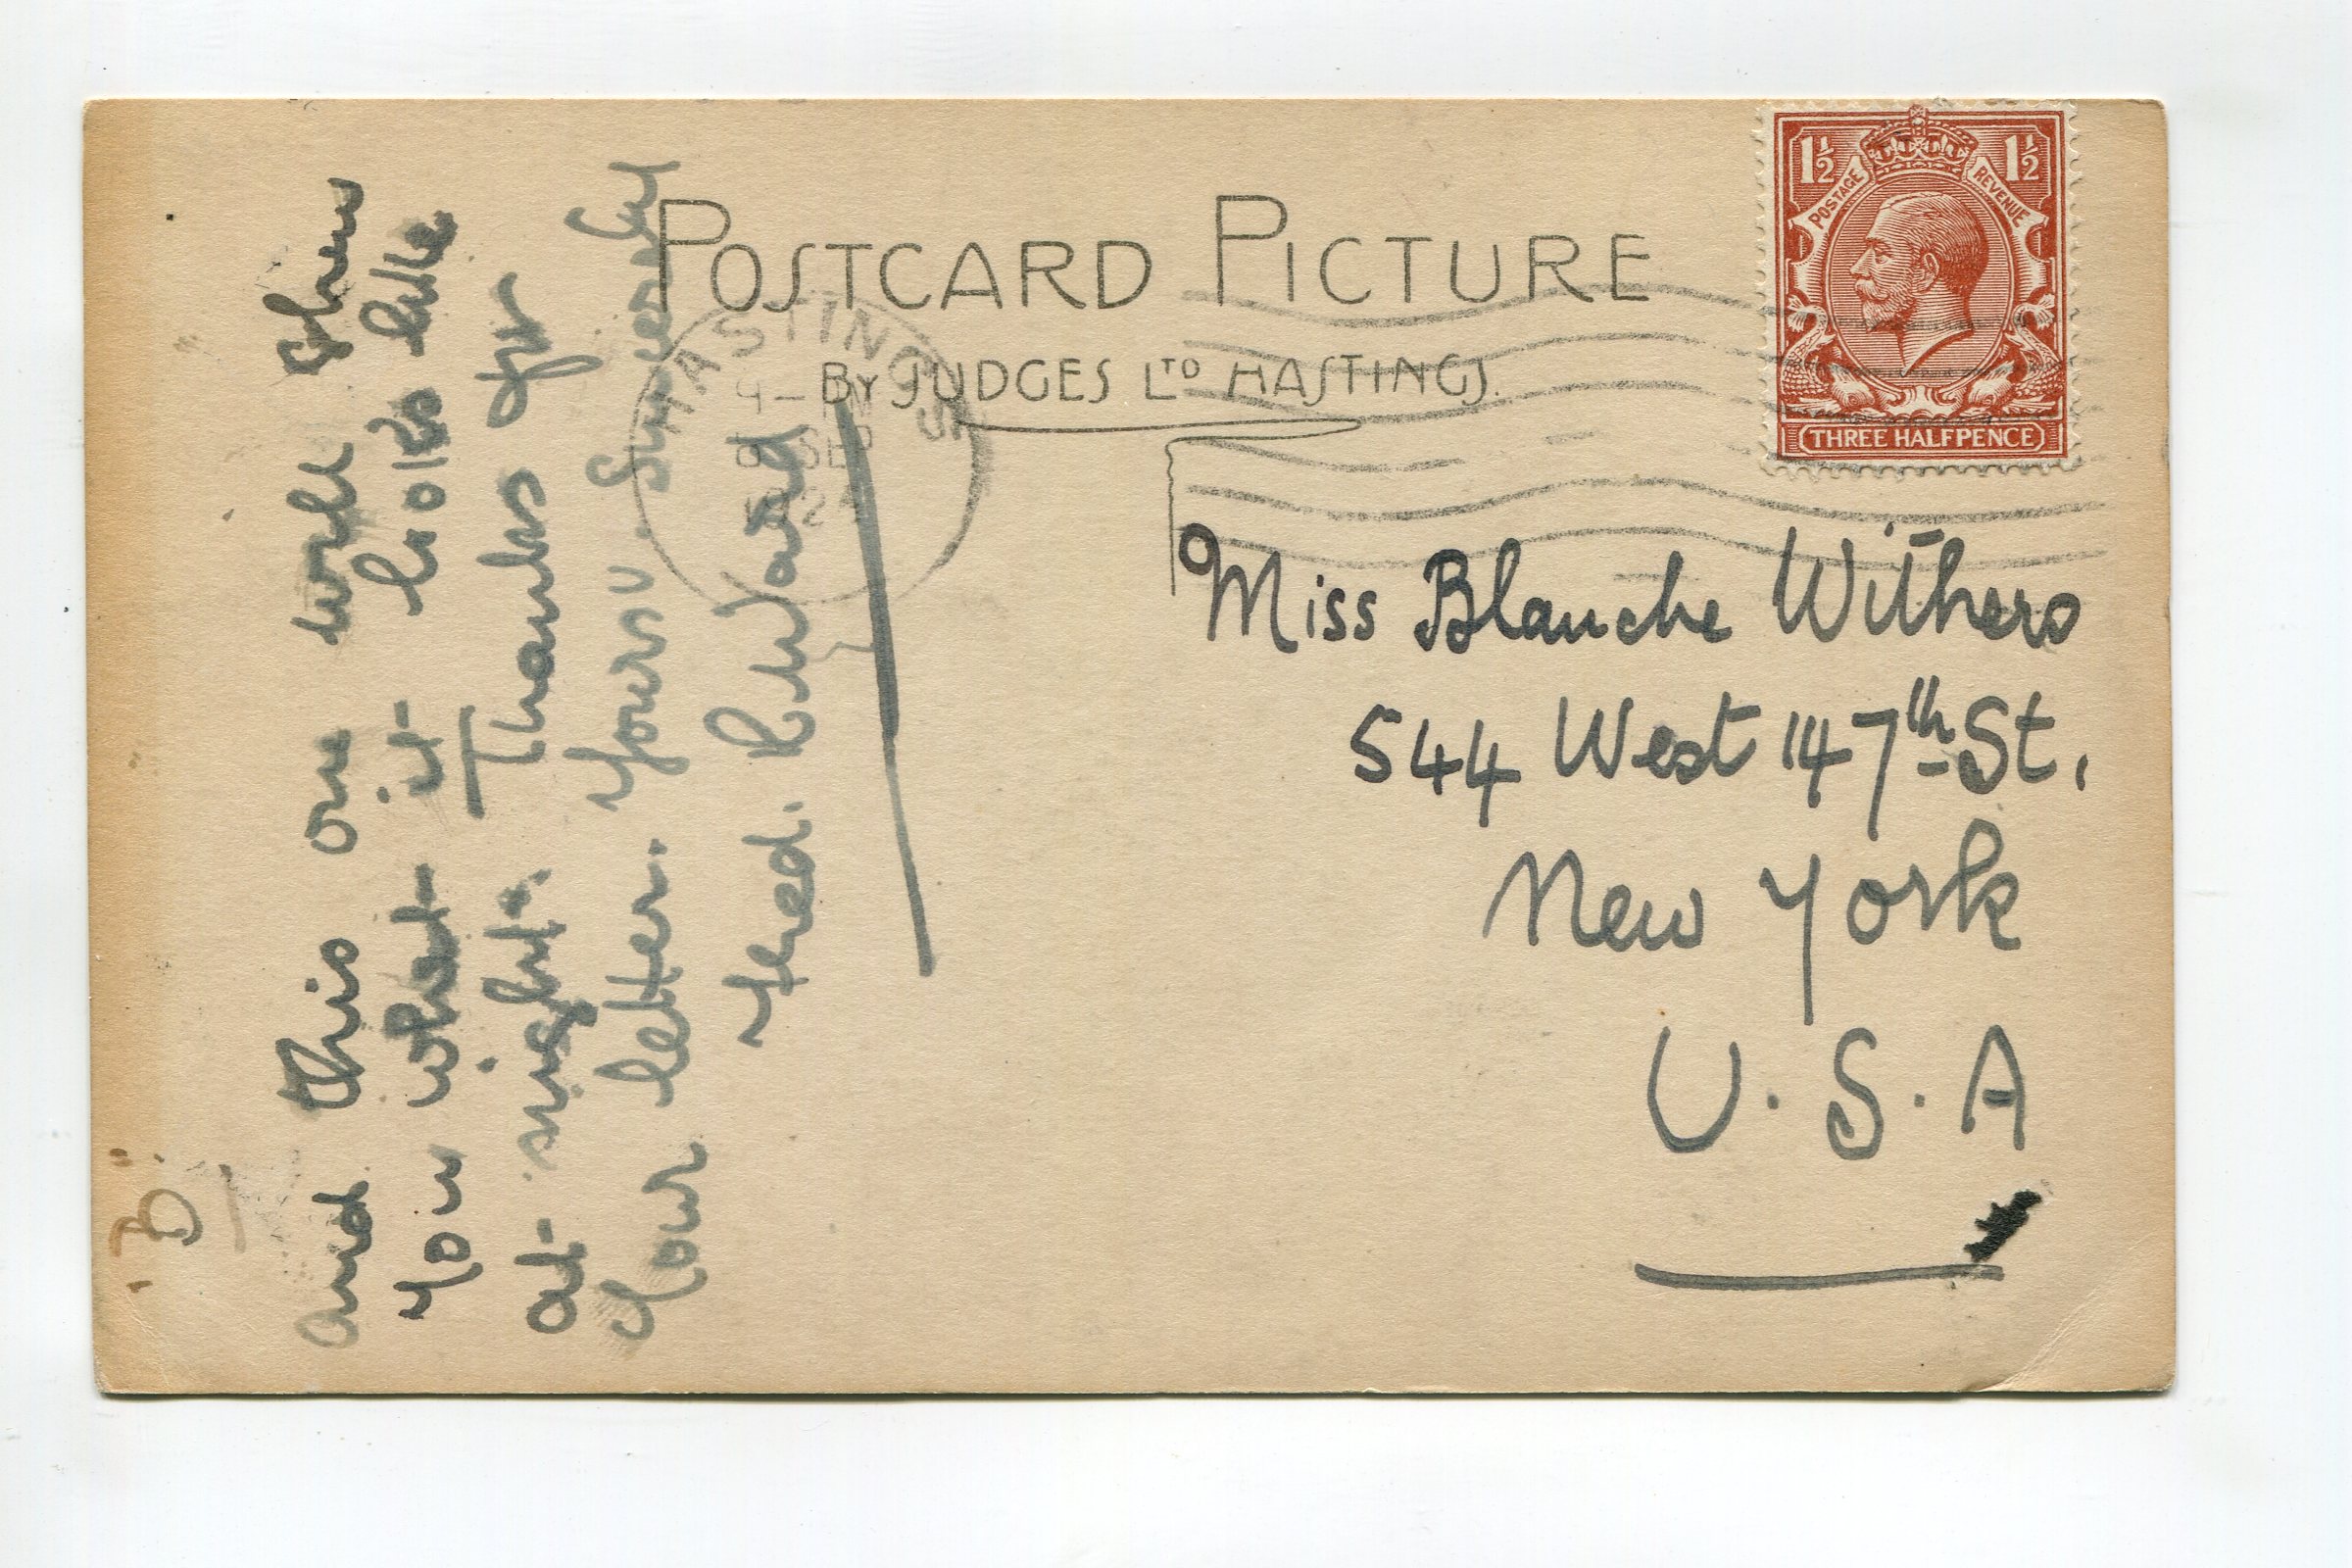 POSTCARD PICTURE
BY JUDGES LTD HASTINGS.
1½ 1½
POSTAGE REVENUE
THREE HALFPENCE
HASTINGS
SEP
Miss Blanche Withers
544 West 147th St.
New York
U.S.A
"B"
And this one will show
you what it looks like
at night. Thanks for
your letter. Yours Sincerely
Fred.